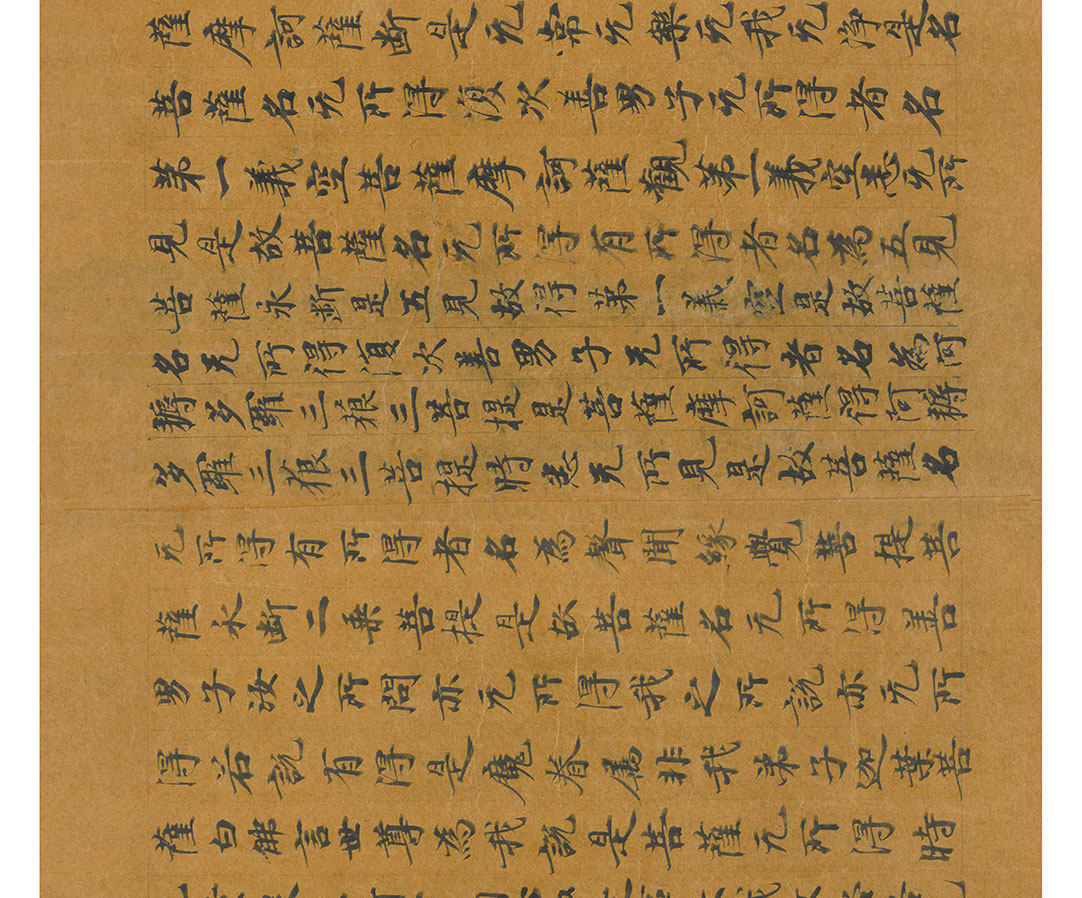 薩摩訶薩断是无常无樂无我无淨是名
菩薩名无所得復次善男子无所得者名
第一義空菩薩摩訶薩觀第一義空悉无所
見是故菩薩名无所得有所得者名為五見
菩薩永断是五見故得第一義空是故菩薩
名无所得復次善男子无所得者名為阿
耨多羅三藐三菩提是菩薩摩訶薩得阿耨
多羅三藐三菩提時悉无所見是故菩薩名
无所得有所得者名為聲聞緣覺菩提菩
薩永断二乗菩提是故菩薩名无所得善
男子汝之所問亦无所得我之所說亦无所
得若說有得是魔眷属非我弟子迦葉菩
薩白佛言世尊為我說是菩薩无所得時